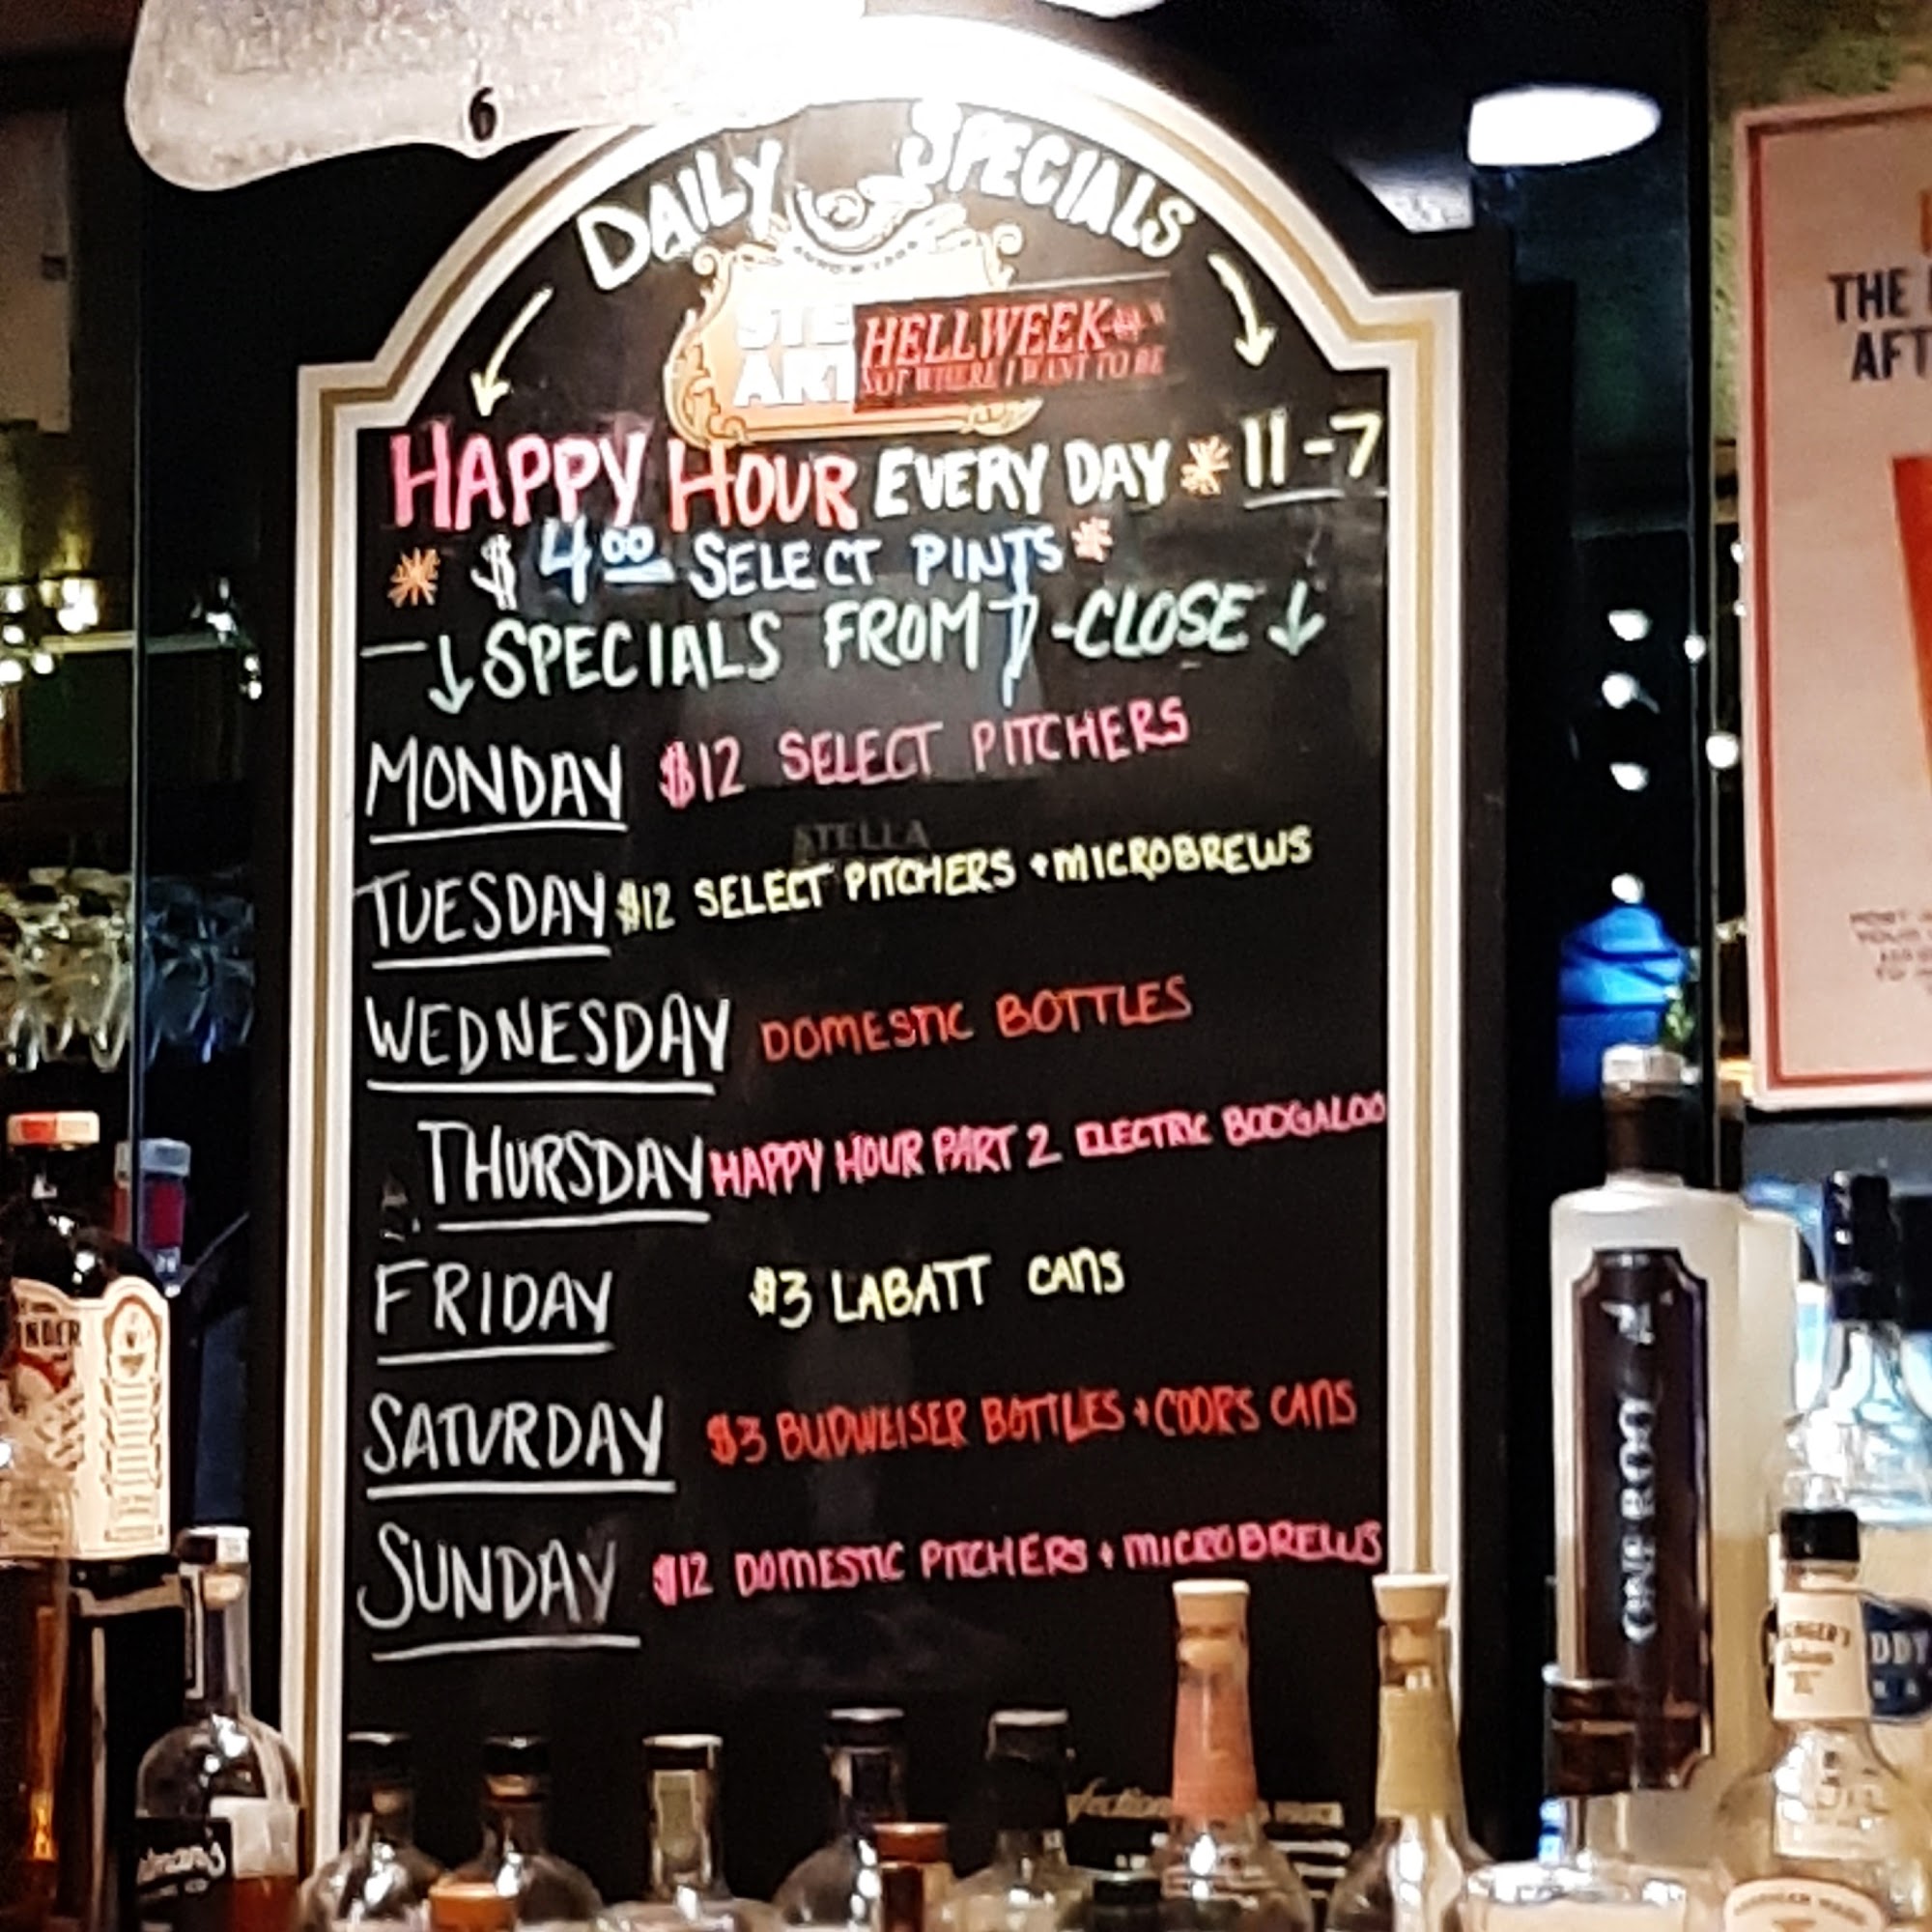 6
DAILY SPECIALS
STE
ART
HELLWEEK
NOT WHERE I WANT TO BE
HAPPY HOUR EVERY DAY * 11-7
* $4.00 SELECT PINTS *
SPECIALS FROM 7-CLOSE
MONDAY $12 SELECT PITCHERS
STELLA
TUESDAY $12 SELECT PITCHERS + MICROBREWS
WEDNESDAY DOMESTIC BOTTLES
THURSDAY HAPPY HOUR PART 2 ELECTRIC BOOGALOO
FRIDAY $3 LABATT CANS
SATURDAY $3 BUDWEISER BOTTLES + COORS CANS
SUNDAY $12 DOMESTIC PITCHERS + MICROBREWS
THE
AFT
NDER
ONE ROQ
DDY